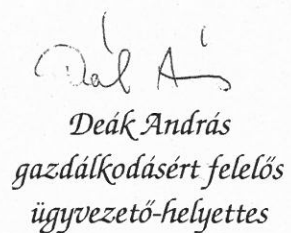 Deák András
gazdálkodásért felelős
ügyvezető-helyettes